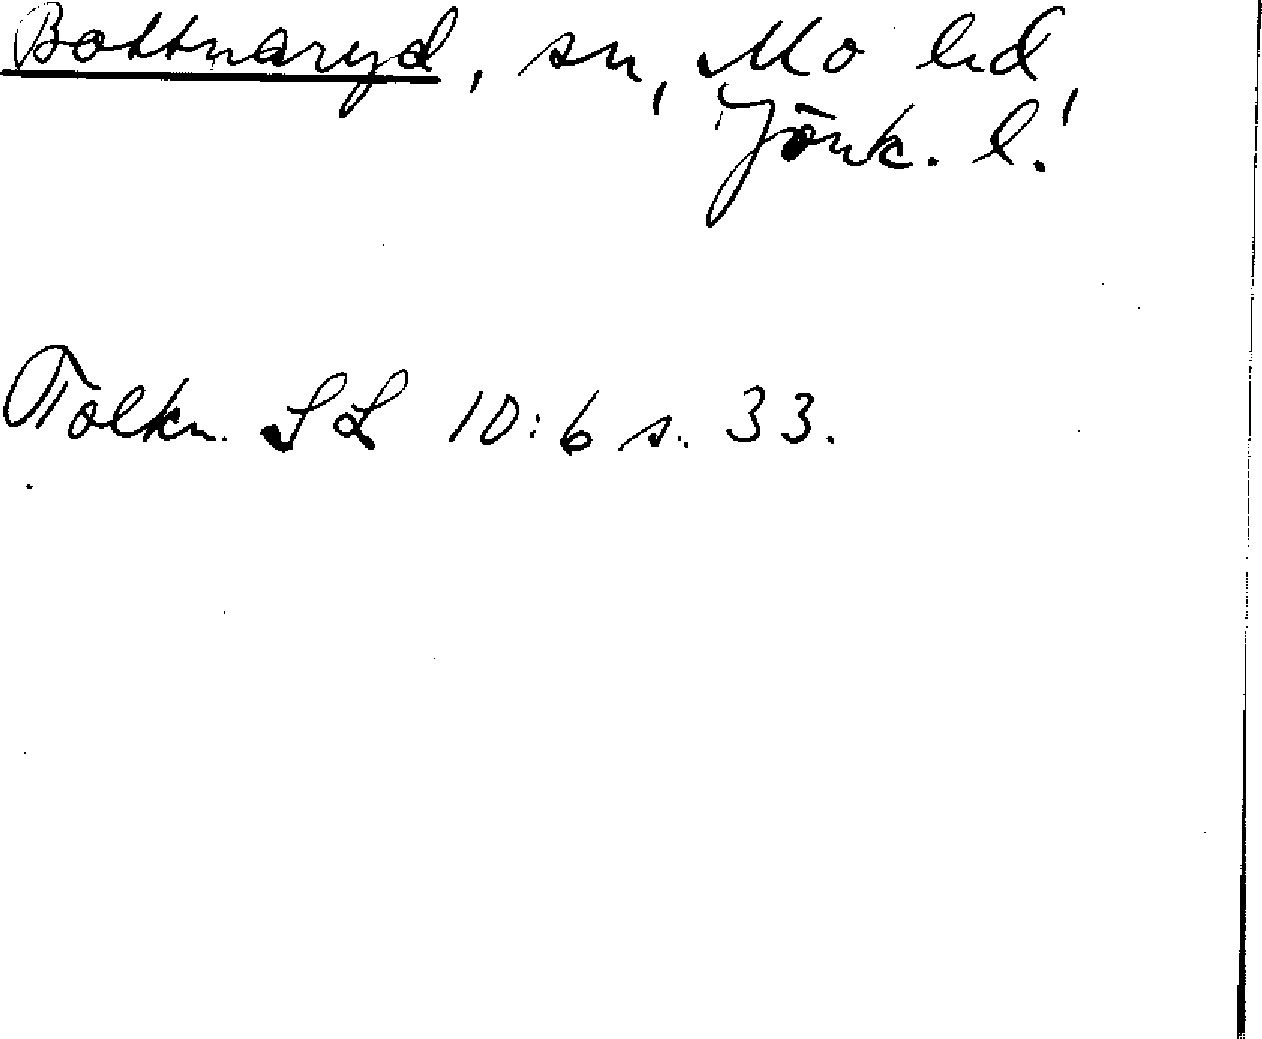 Bottnaryd, sn, Mo hd,
Jönk. l.
Tolkn. SL 10:6 s. 33.